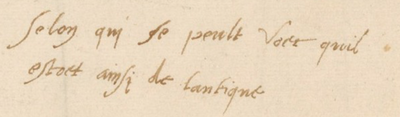 selon qui se peult voer quil
estoet ainsi de lantique